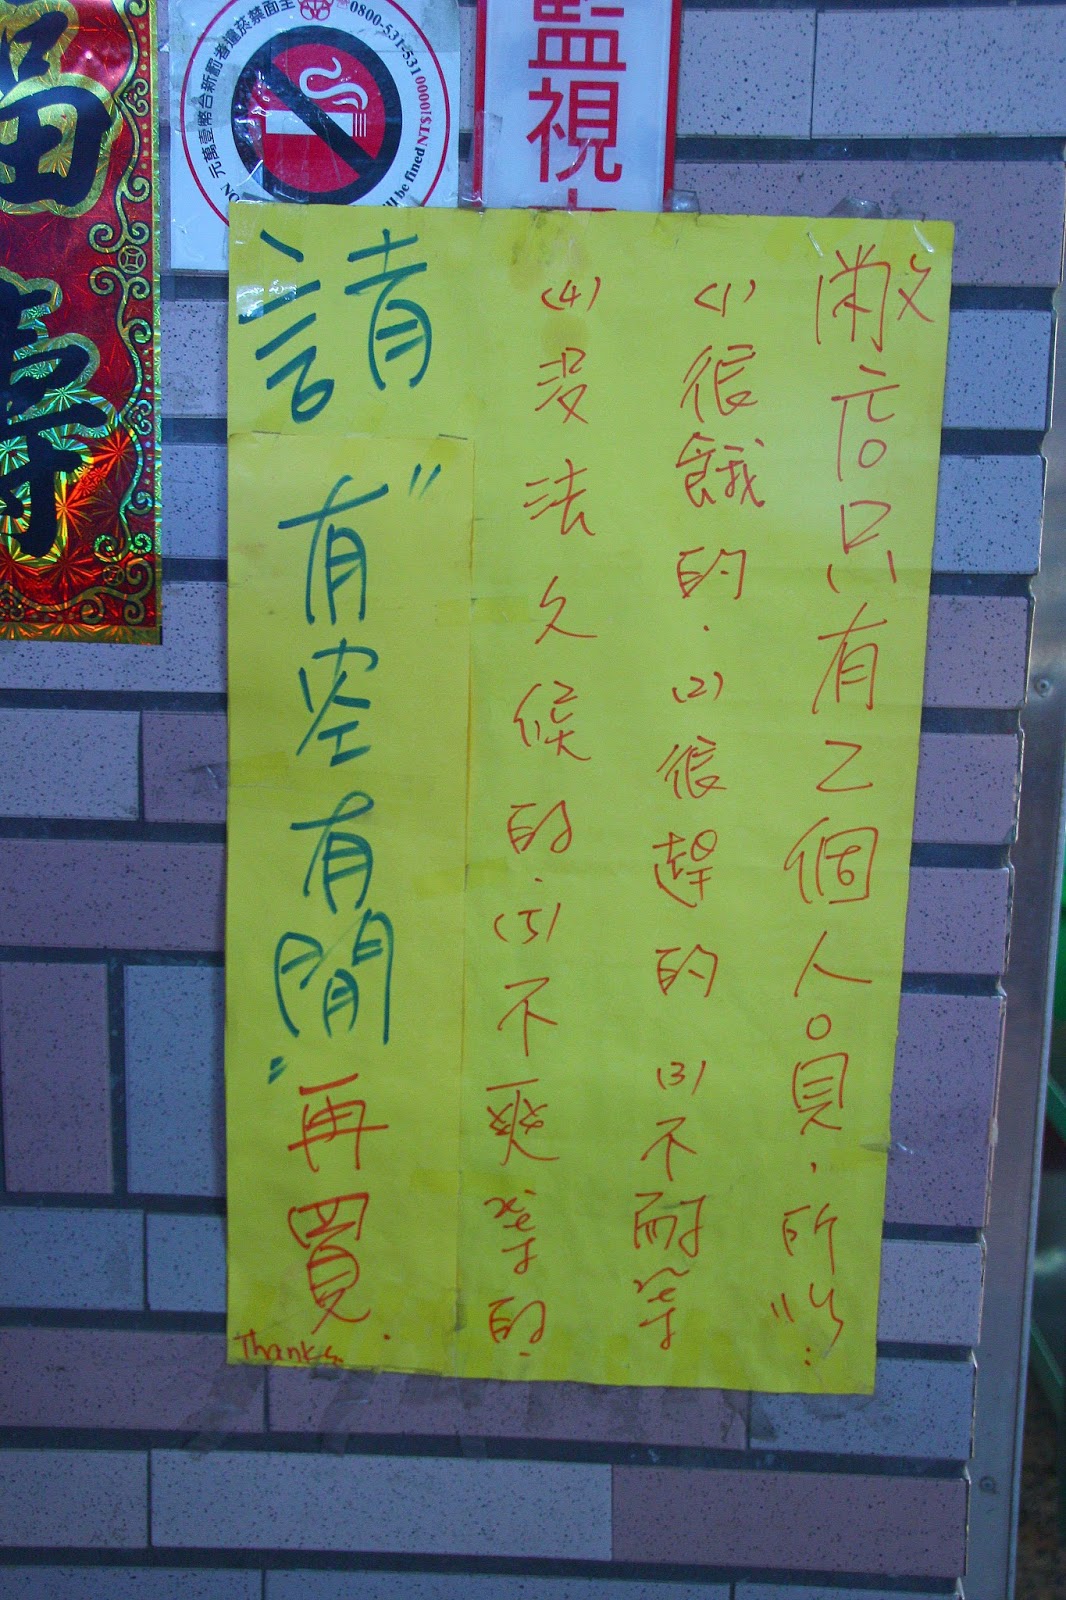 全面禁菸違者罰新台幣壹萬元
0800-531-531
be fined NT$10000!
監視
敝店只有乙個人員.所以:
(1)很餓的.(2)很趕的(3)不耐等
(4)沒法久候的.(5)不爽等的.
請"有空有閒"再買.
Thanks.